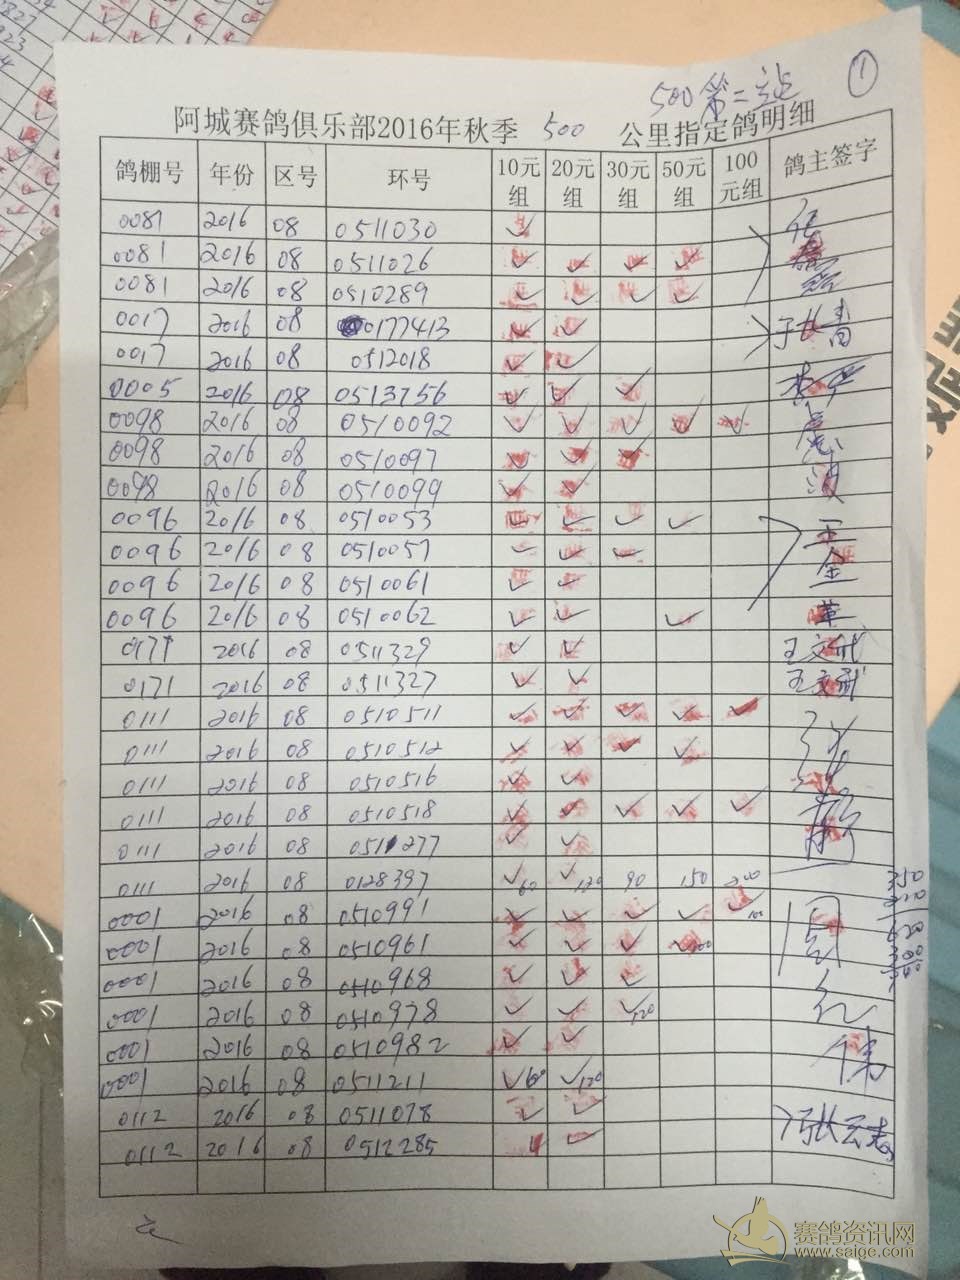 ①
500第二站
阿城赛鸽俱乐部2016年秋季 500 公里指定鸽明细
鸽棚号 年份 区号 环号 10元组 20元组 30元组 50元组 100元组 鸽主签字
0081 2016 08 0511030 ✓
0081 2016 08 0511026 ✓ ✓ ✓ ✓
0081 2016 08 0510289 ✓ ✓ ✓ ✓
0017 2016 08 0177413 ✓ ✓
0017 2016 08 0512018 ✓ ✓
0005 2016 08 0513756 ✓ ✓ ✓
0098 2016 08 0510092 ✓ ✓ ✓ ✓ ✓
0098 2016 08 0510097 ✓ ✓ ✓
0098 2016 08 0510099 ✓ ✓
0096 2016 08 0510053 ✓ ✓ ✓ ✓ 王
0096 2016 08 0510057 ✓ ✓ ✓ 金
0096 2016 08 0510061 ✓ ✓
0096 2016 08 0510062 ✓ ✓ ✓ 革
0171 2016 08 0511329 ✓ ✓ 王文武
0171 2016 08 0511327 ✓ ✓ 王文武
0111 2016 08 0510511 ✓ ✓ ✓ ✓ ✓
0111 2016 08 0510512 ✓ ✓ ✓ ✓
0111 2016 08 0510516 ✓ ✓
0111 2016 08 0510518 ✓ ✓ ✓ ✓ ✓
0111 2016 08 0511277 ✓ ✓
0111 2016 08 0128397 ✓60 ✓120 90 150 200
0001 2016 08 0510991 ✓ ✓ ✓ ✓ ✓100 周
0001 2016 08 0510961 ✓ ✓ ✓ ✓200
0001 2016 08 0510968 ✓ ✓ ✓
0001 2016 08 0510978 ✓ ✓ ✓120 红
0001 2016 08 0510982 ✓ ✓ 伟
0001 2016 08 0511211 ✓60 ✓120
0112 2016 08 0511078 ✓ ✓ 张云志
0112 2016 08 0512285 ✓ ✓
赛鸽资讯网
www.saige.com